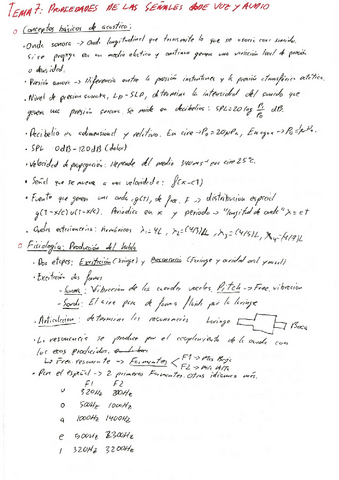 TEMA 7: PROPIEDADES DE LAS SEÑALES DE VOZ Y AUDIO
○ Conceptos básicos de acústica:
· Onda sonora → Onda longitudinal que transmite lo que se asocia con sonido.
Si se propaga en un medio elástico y continuo genera una variación local de presión
o densidad.
· Presión sonora → Diferencia entre la presión instantánea y la presión atmosférica estática.
· Nivel de presión sonora, Lp - SLP, determina la intensidad del sonido que
genera una presión sonora se mide en decibelios: SPL = 20 log dB.
· Decibelio es adimensional y relativo. En aire → P₀ = 20μPa, En agua → P₀ = 1μPa.
· SPL 0dB - 120dB (dolor)
· Velocidad de propagación: Depende del medio 340 ms⁻¹ en aire 25°C.
· Señal que se mueve a una velocidad c: f(x-ct)
· Fuente que genera una onda, g(t), de frec. F → distribución espacial
g(t-x/c) Periódica en x y periodo → "longitud de onda" λ = cT
· Armónicos λ₁=4L, λ₂=(4/3)L, λ₃=(4/5)L, λ₄=(4/7)L
○ Fisiología: Producción del habla
· Dos etapas: Excitación (laringe) y Resonancia (faringe y cavidad oral y nasal)
· Excitación dos formas
- Sonora: Vibración de las cuerdas vocales. Pitch → Frec. vibración
- Sorda: El aire pasa de forma fluida por la laringe
- Articulación: determina las resonancias laringe Boca
· La resonancia se produce por el acoplamiento de la onda con
los ecos producidos.
↳ Frec. resonante → Formantes F1 → Más Baja
F2 → Más Alta
· Para el español → 2 primeros Formantes. Otros idiomas más.
F1 F2
u 320Hz 800Hz
o 500Hz 1000Hz
a 1000Hz 1400Hz
e 500Hz 2300Hz
i 320Hz 3200Hz